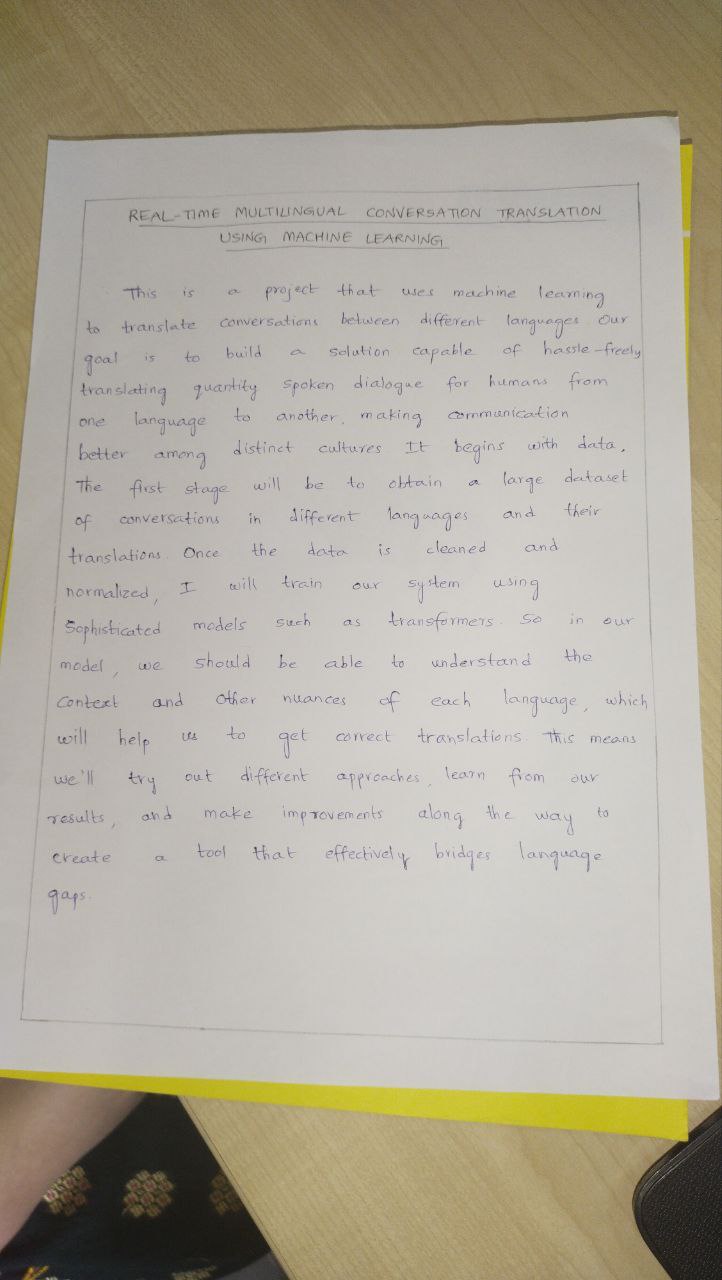 REAL-TIME MULTILINGUAL CONVERSATION TRANSLATION
USING MACHINE LEARNING
This is a project that uses machine learning
to translate conversations between different languages. Our
goal is to build a solution capable of hassle-freely
translating quantity spoken dialogue for humans from
one language to another, making communication
better among distinct cultures It begins with data.
The first stage will be to obtain a large dataset
of conversations in different languages and their
translations. Once the data is cleaned and
normalized, I will train our system using
Sophisticated models such as transformers. So in our
model, we should be able to understand the
Context and other nuances of each language, which
will help us to get correct translations. This means
we'll try out different approaches, learn from our
results, and make improvements along the way to
create a tool that effectively bridges language
gaps.